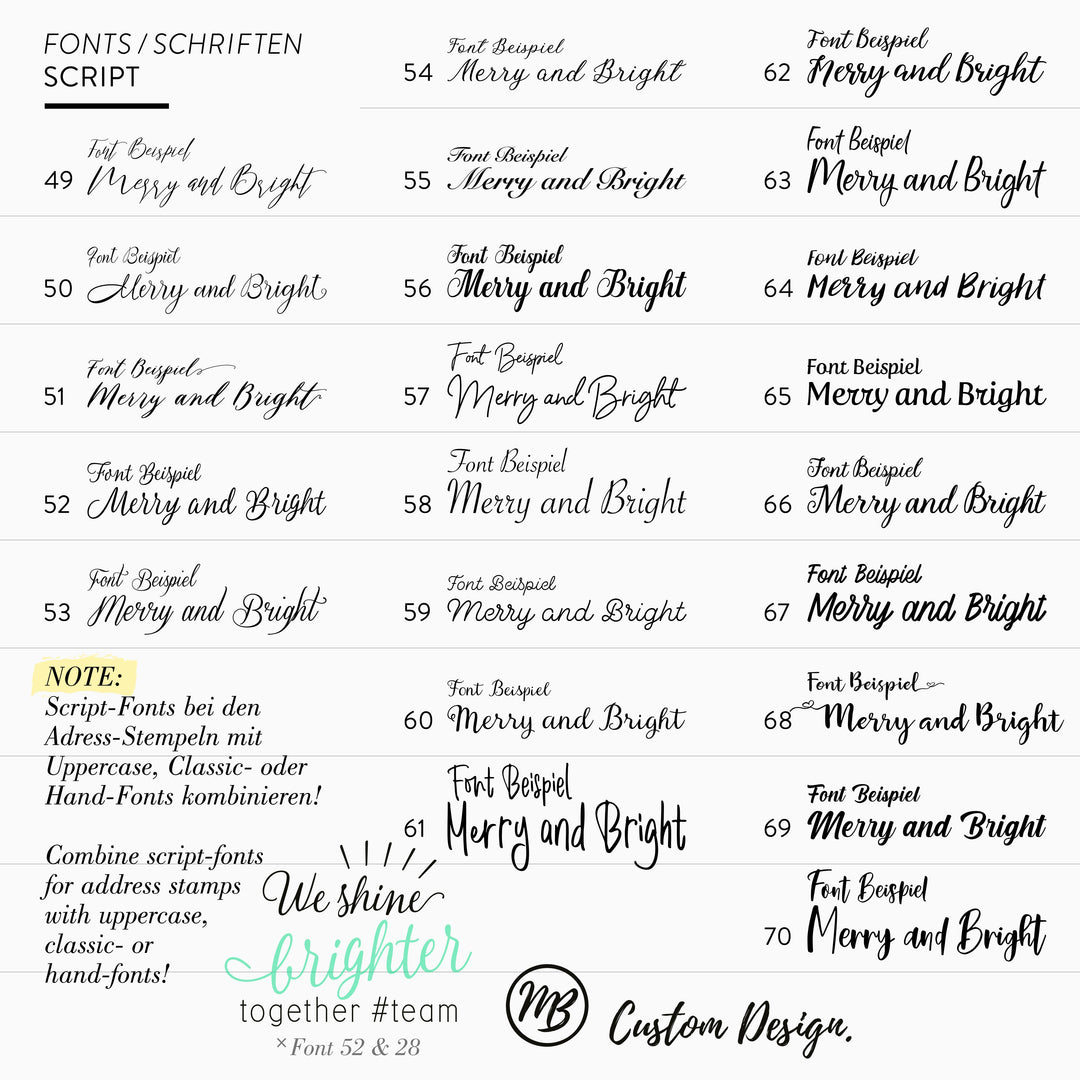 FONTS / SCHRIFTEN
SCRIPT
49 Font Beispiel
Merry and Bright
50 Font Beispiel
Merry and Bright
51 Font Beispiel
Merry and Bright
52 Font Beispiel
Merry and Bright
53 Font Beispiel
Merry and Bright
NOTE:
Script-Fonts bei den
Adress-Stempeln mit
Uppercase, Classic- oder
Hand-Fonts kombinieren!
Combine script-fonts
for address stamps
with uppercase,
classic- or
hand-fonts!
54 Font Beispiel
Merry and Bright
55 Font Beispiel
Merry and Bright
56 Font Beispiel
Merry and Bright
57 Font Beispiel
Merry and Bright
58 Font Beispiel
Merry and Bright
59 Font Beispiel
Merry and Bright
60 Font Beispiel
Merry and Bright
61 Font Beispiel
Merry and Bright
We shine
brighter
together #team
× Font 52 & 28
62 Font Beispiel
Merry and Bright
63 Font Beispiel
Merry and Bright
64 Font Beispiel
Merry and Bright
65 Font Beispiel
Merry and Bright
66 Font Beispiel
Merry and Bright
67 Font Beispiel
Merry and Bright
68 Font Beispiel
Merry and Bright
69 Font Beispiel
Merry and Bright
70 Font Beispiel
Merry and Bright
MB Custom Design.